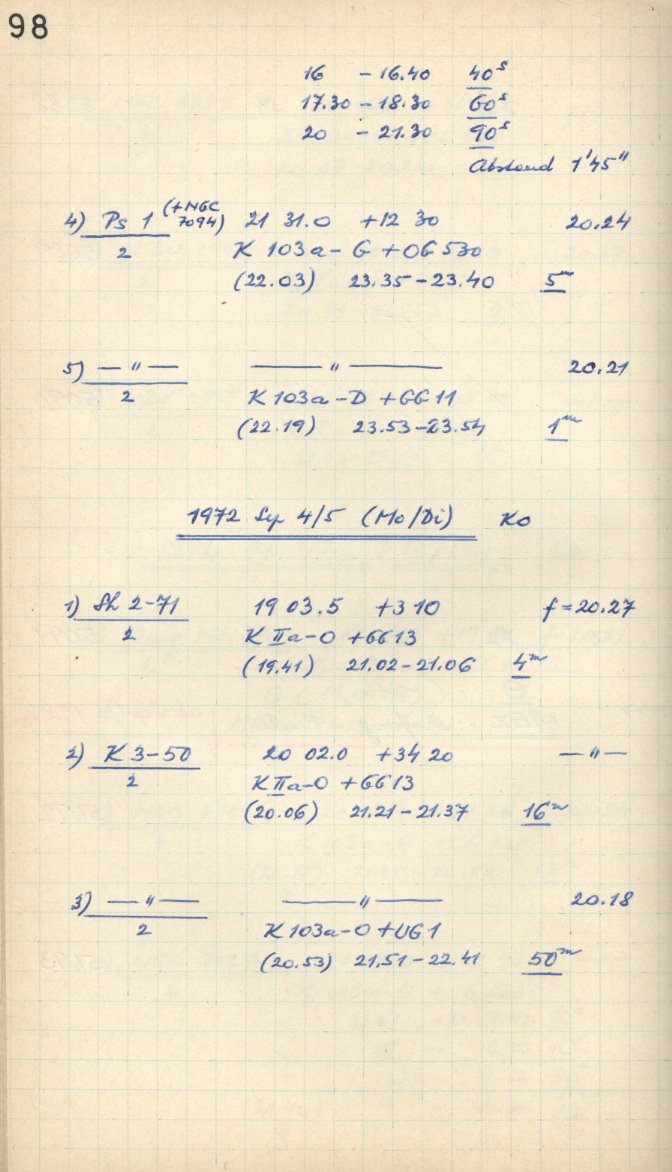 98
16 - 16.40 40ˢ
17.30 - 18.30 60ˢ
20 - 21.30 90ˢ
Abstand 1'45"
4) Ps 1 (+NGC 7094) 21 31.0 +12 30 20.24
2 K 103a-G + OG 530
(22.03) 23.35 - 23.40 5ᵐ
5) — " — — " — 20.21
2 K 103a-D + GG 11
(22.19) 23.53 - 23.54 1ᵐ
1972 Sp 4/5 (Mo/Di) Ko
1) Sh 2-71 19 03.5 +3 10 f = 20.27
2 K IIa-O + GG 13
(19.41) 21.02 - 21.06 4ᵐ
2) K 3-50 20 02.0 +34 20 — " —
2 K IIa-O + GG 13
(20.06) 21.21 - 21.37 16ᵐ
3) — " — — " — 20.18
2 K 103a-O + UG 1
(20.53) 21.51 - 22.41 50ᵐ